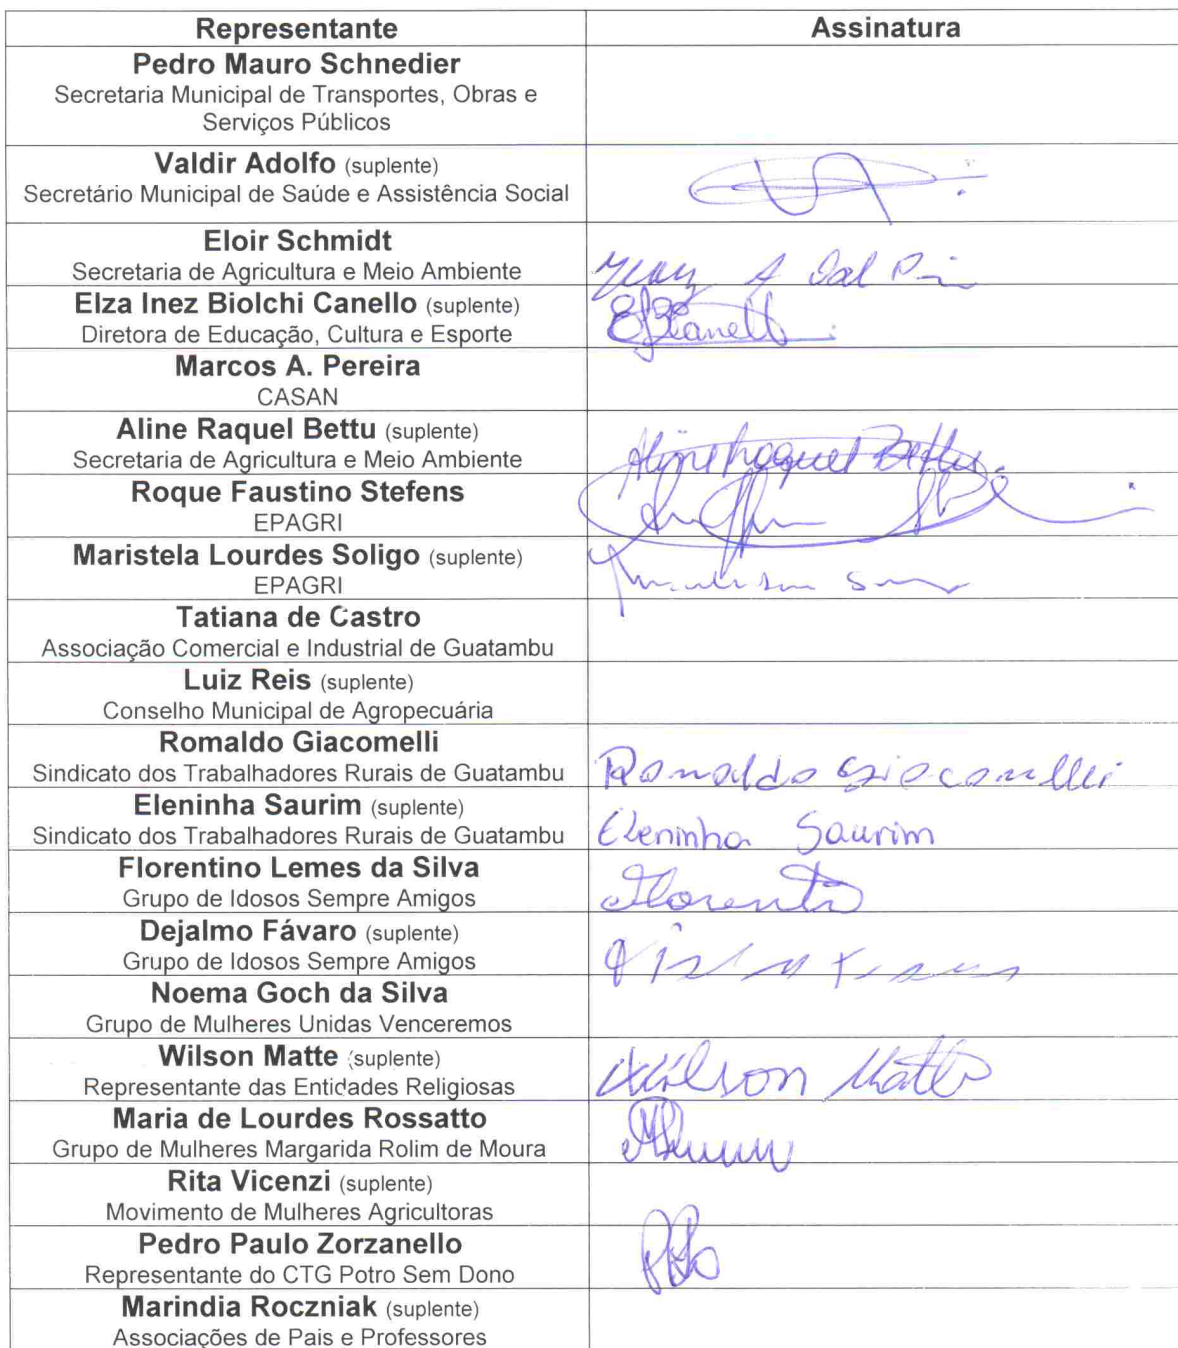 Representante Assinatura
Pedro Mauro Schnedier
Secretaria Municipal de Transportes, Obras e
Serviços Públicos
Valdir Adolfo (suplente)
Secretário Municipal de Saúde e Assistência Social
Eloir Schmidt
Secretaria de Agricultura e Meio Ambiente
Elza Inez Biolchi Canello (suplente)
Diretora de Educação, Cultura e Esporte
Marcos A. Pereira
CASAN
Aline Raquel Bettu (suplente)
Secretaria de Agricultura e Meio Ambiente Aline Raquel Bettu
Roque Faustino Stefens
EPAGRI
Maristela Lourdes Soligo (suplente)
EPAGRI
Tatiana de Castro
Associação Comercial e Industrial de Guatambu
Luiz Reis (suplente)
Conselho Municipal de Agropecuária
Romaldo Giacomelli
Sindicato dos Trabalhadores Rurais de Guatambu Romaldo Giacomelli
Eleninha Saurim (suplente)
Sindicato dos Trabalhadores Rurais de Guatambu Eleninha Saurim
Florentino Lemes da Silva
Grupo de Idosos Sempre Amigos
Dejalmo Fávaro (suplente)
Grupo de Idosos Sempre Amigos
Noema Goch da Silva
Grupo de Mulheres Unidas Venceremos
Wilson Matte (suplente)
Representante das Entidades Religiosas Wilson Matte
Maria de Lourdes Rossatto
Grupo de Mulheres Margarida Rolim de Moura
Rita Vicenzi (suplente)
Movimento de Mulheres Agricultoras
Pedro Paulo Zorzanello
Representante do CTG Potro Sem Dono
Marindia Roczniak (suplente)
Associações de Pais e Professores